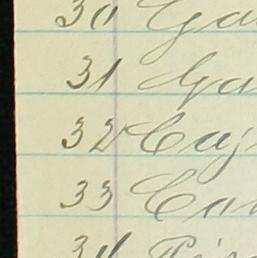 30 Ga
31 Ga
32 Cay
33 Car
34